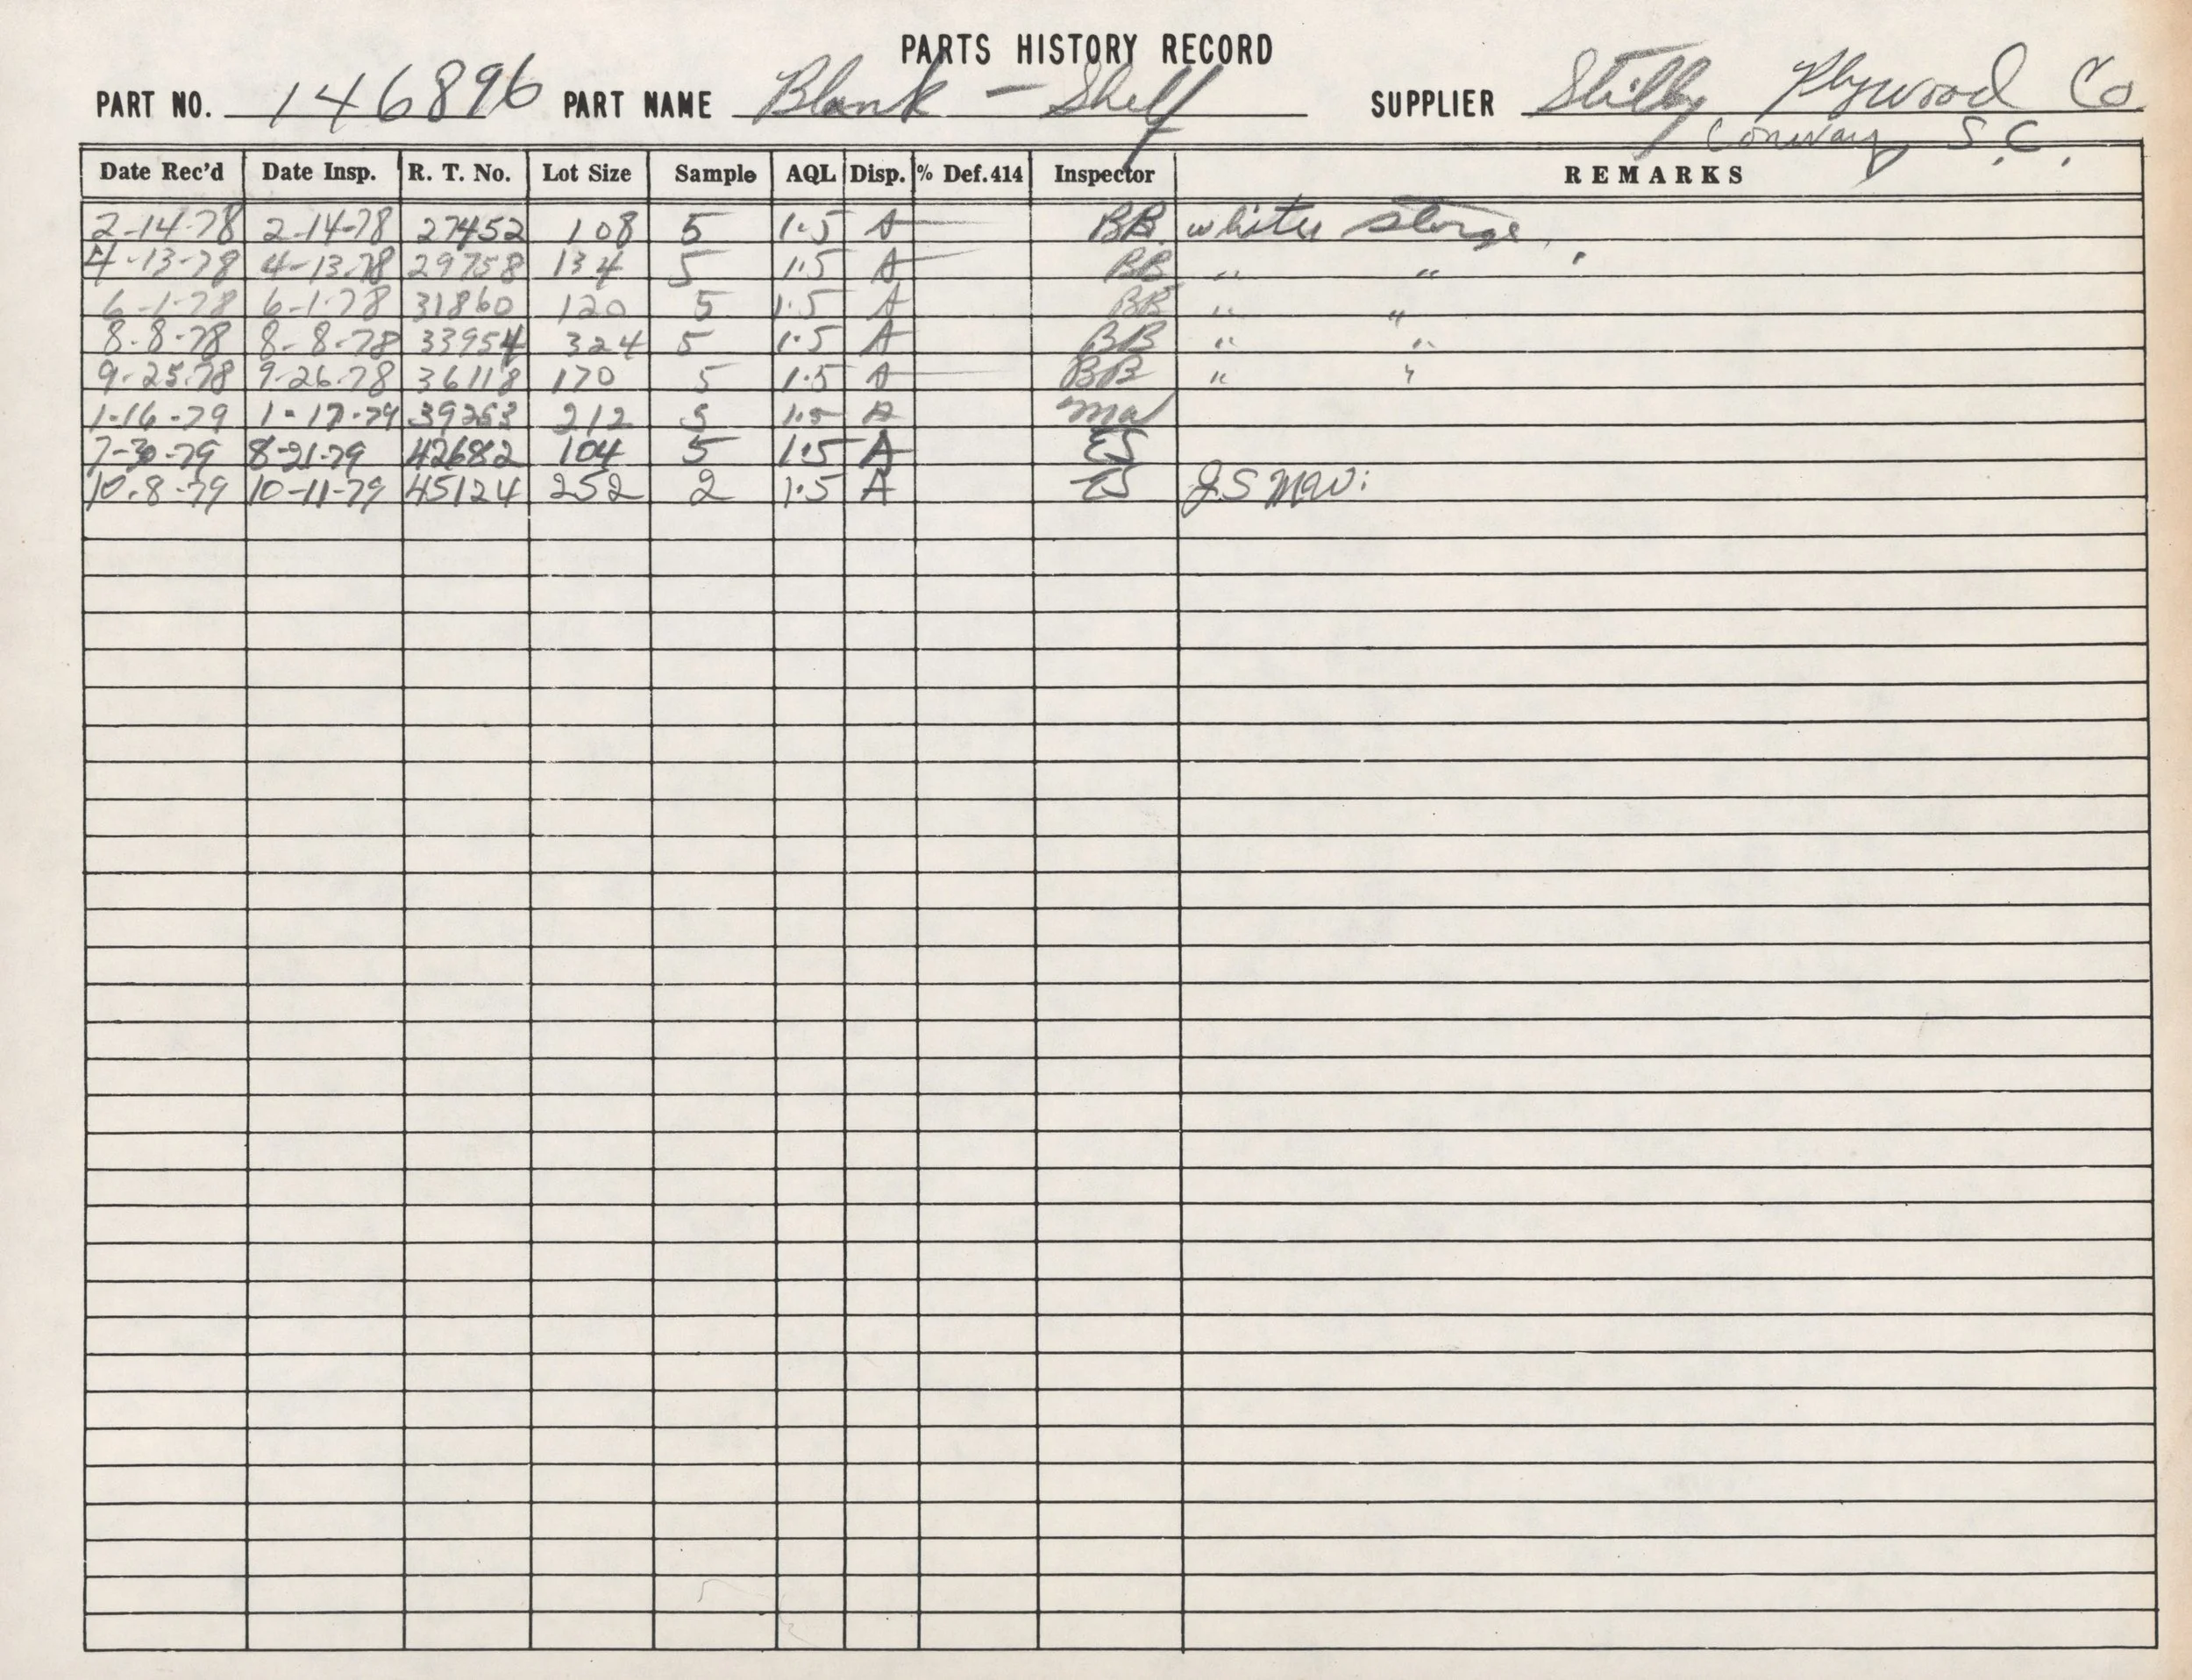 PARTS HISTORY RECORD
PART NO. 146896 PART NAME Blank - Shelf SUPPLIER Stilley Plywood Co
Conway, S.C.
Date Rec'd Date Insp. R. T. No. Lot Size Sample AQL Disp. % Def.414 Inspector REMARKS
2-14-78 2-14-78 27452 108 5 1.5 A BB white storge
4-13-78 4-13-78 29758 134 5 1.5 A BB " "
6-1-78 6-1-78 31860 120 5 1.5 A BB " "
8-8-78 8-8-78 33954 324 5 1.5 A BB " "
9-25-78 9-26-78 36118 170 5 1.5 A BB " "
1-16-79 1-17-79 39253 212 5 1.5 A MW
7-30-79 8-21-79 42682 104 5 1.5 A ES
10-8-79 10-11-79 45124 252 2 1.5 A ES